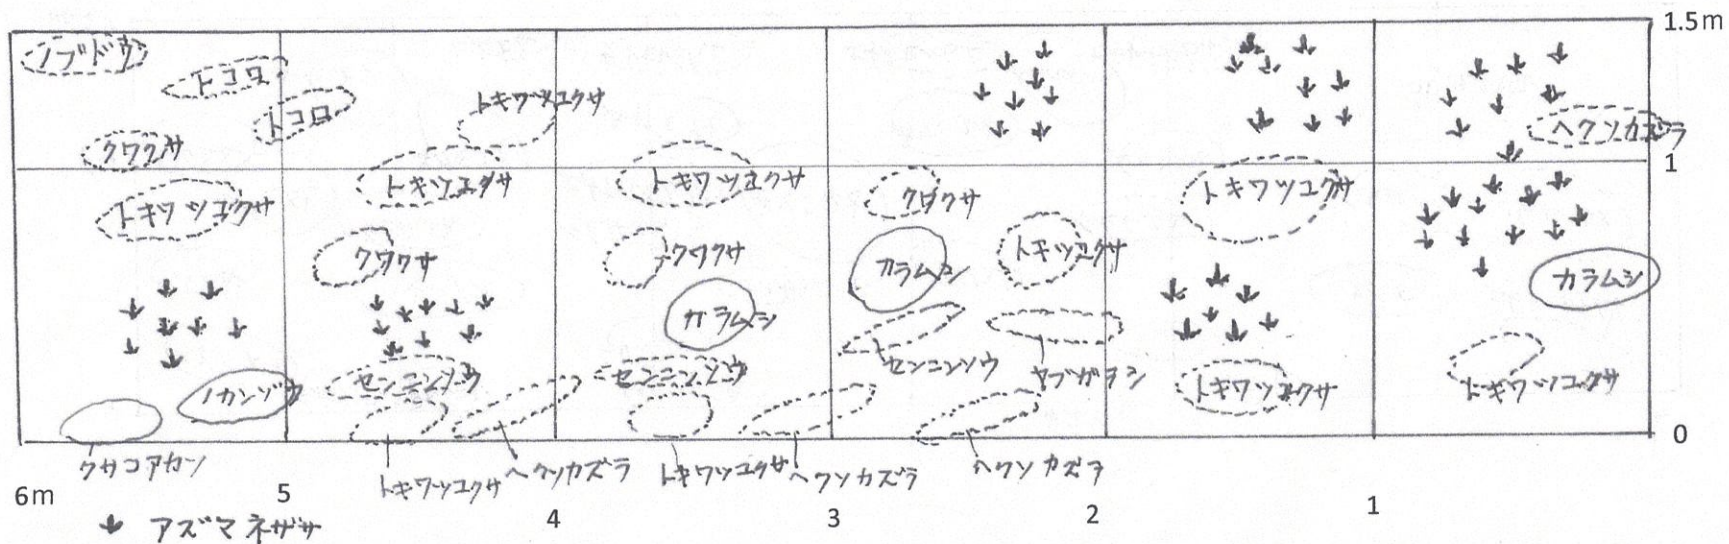 1.5m
ノブドウ
トコロ
トコロ
トキワツユクサ
クワクサ
ヘクソカズラ
1
トキワツユクサ
トキツユクサ
トキワツユクサ
クワクサ
トキワツユクサ
クワクサ
クワクサ
カラムシ
トキツユクサ
カラムシ
カラムシ
ノカンゾウ
センニンソウ
センニンソウ
センニンソウ
ヤブガラシ
トキワツユクサ
トキワツユクサ
0
クサコアカソ
トキワツユクサ
ヘクソカズラ
トキワツユクサ
ヘクソカズラ
ヘクソカズラ
6m
5
4
3
2
1
アズマネザサ